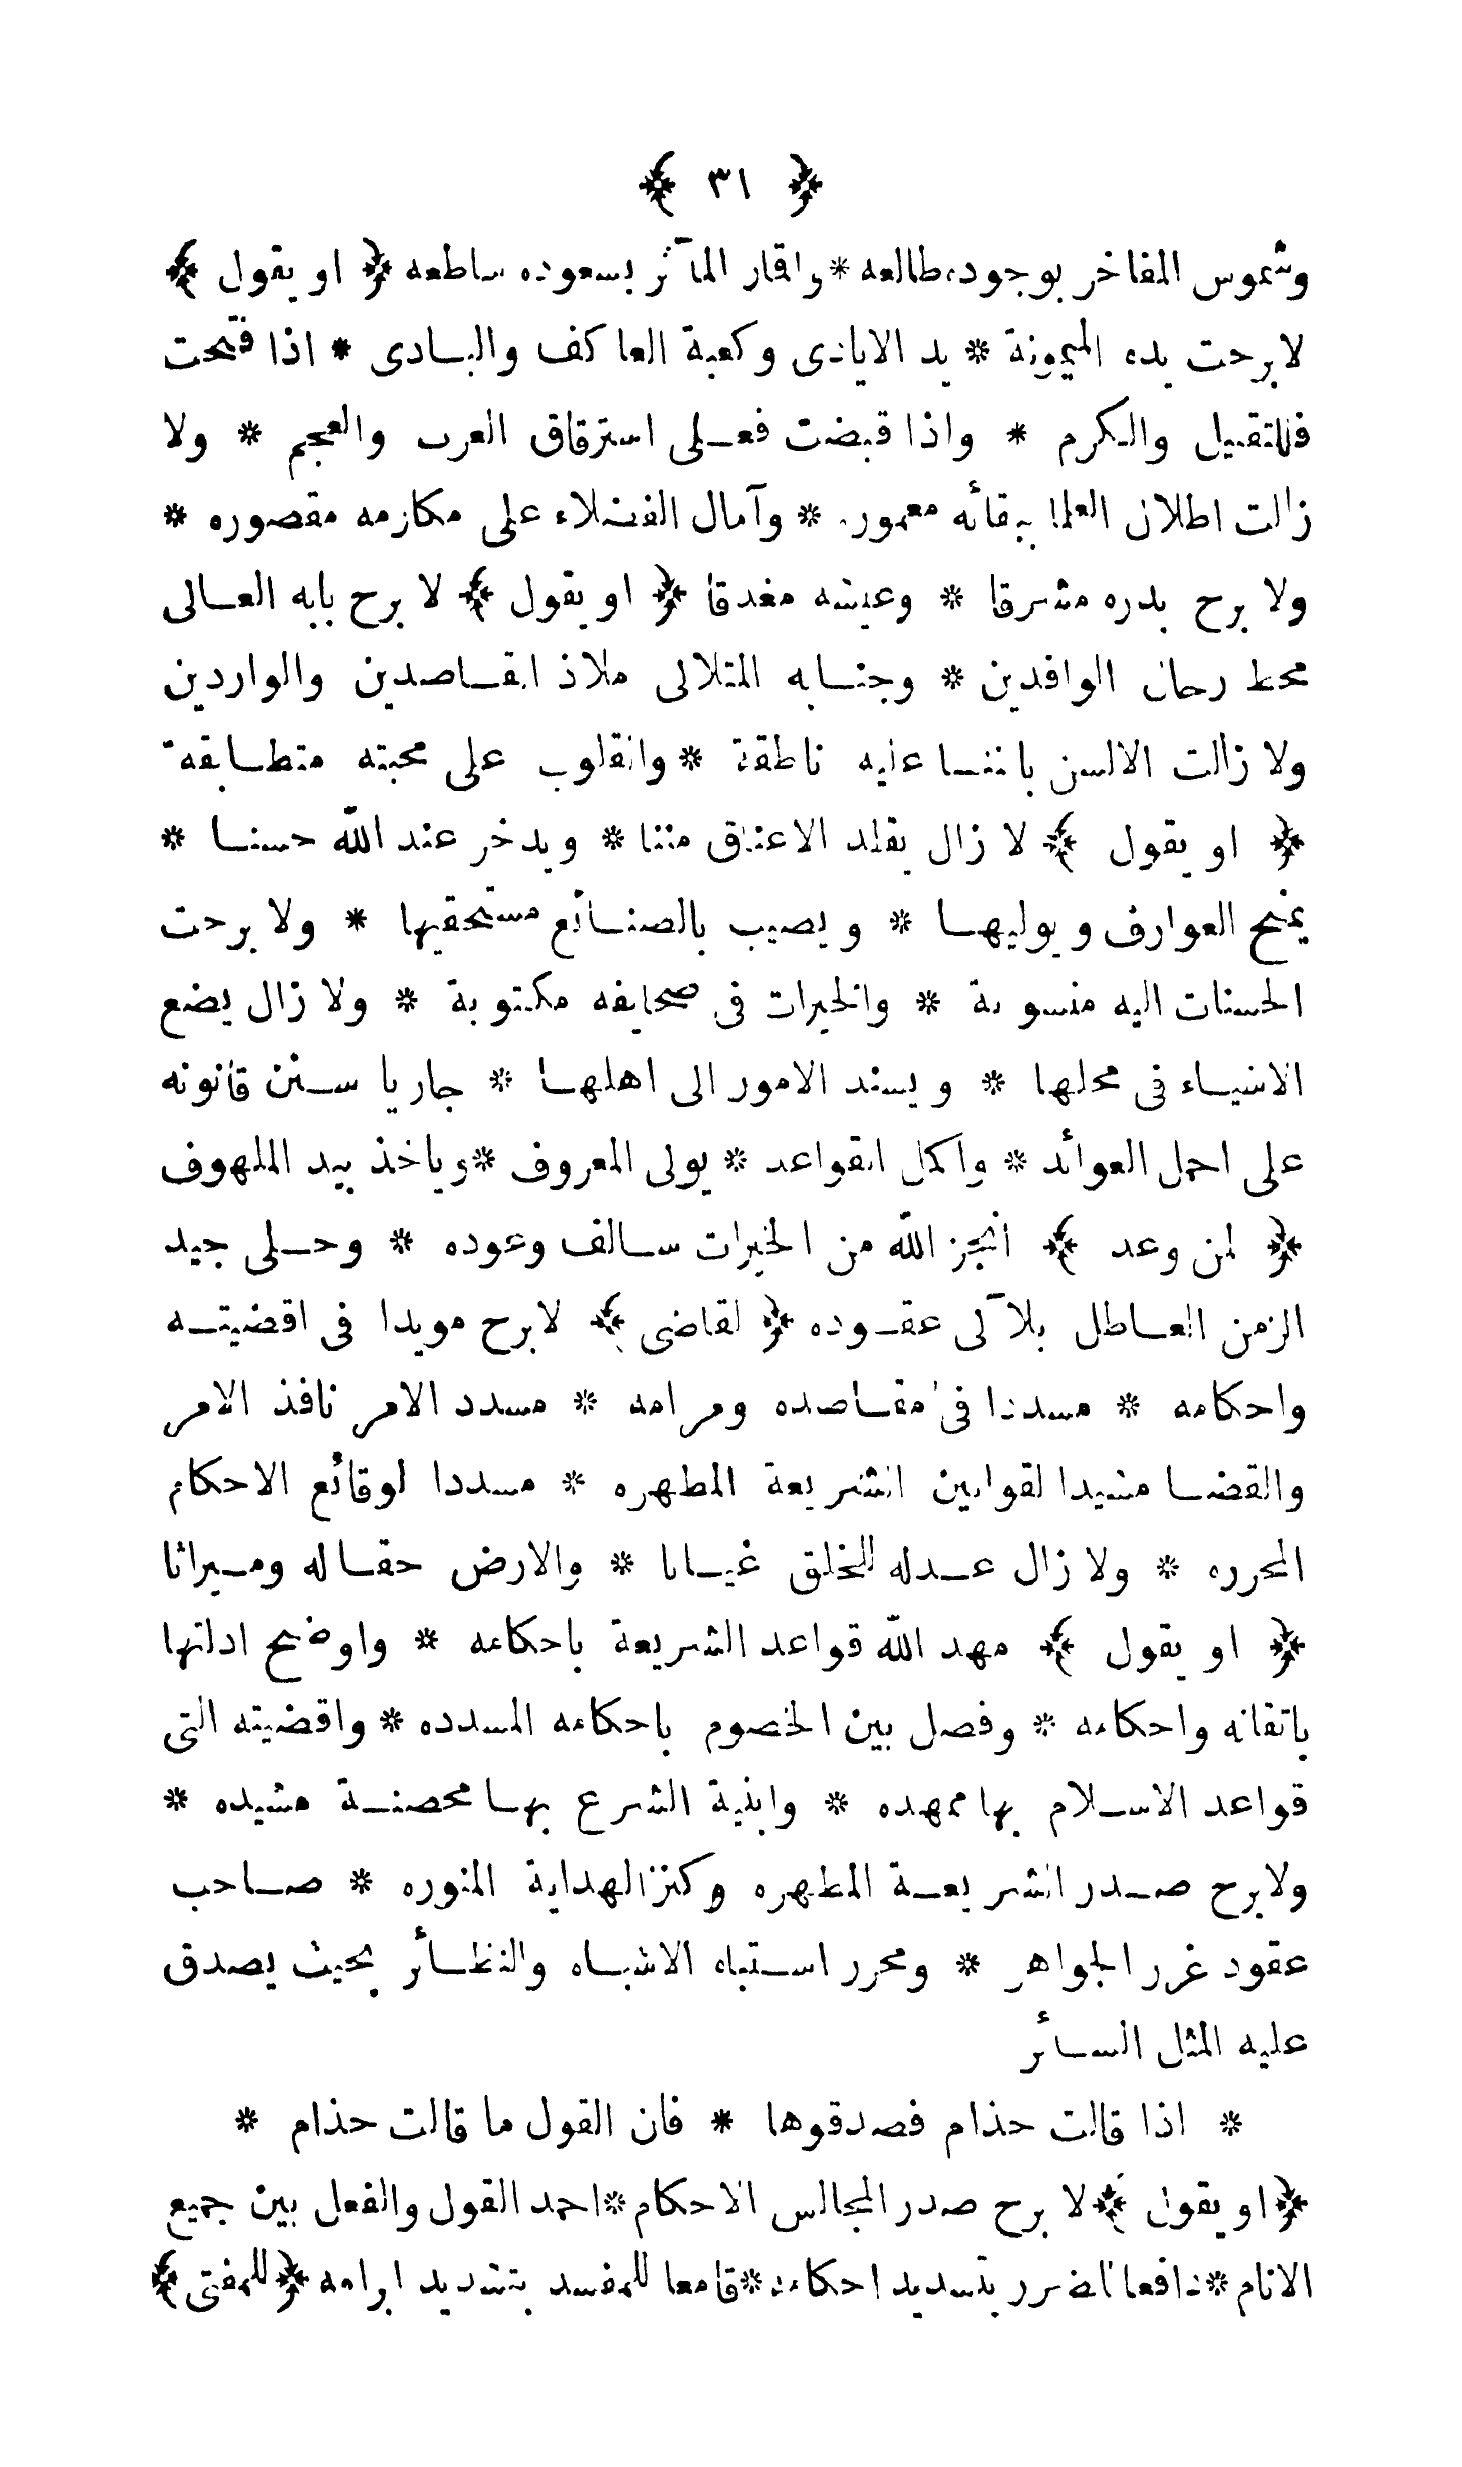 ﴿ ٣١ ﴾
وشموس المفاخر بوجوده طالعه * واقمار المآثر بسعوده ساطعه ﴿ او يقول ﴾
لا برحت يده الميمونة * يد الايادى وكعبة العاكف والبادى * اذا فتحت
فللتقبيل والكرم * واذا قبضت فعلى استرقاق العرب والعجم * ولا
زالت اطلال العلا ببقائه معموره * وآمال الفضلاء على مكارمه مقصوره *
ولا برح بدره مشرقا * وعيشه مغدقا ﴿ او يقول ﴾ لا برح بابه العالى
محط رحال الوافدين * وجنابه المتلالى ملاذ القاصدين والواردين
ولا زالت الالسن بالثنا عليه ناطقة * والقلوب على محبته متطابقة
﴿ او يقول ﴾ لا زال يقلد الاعناق مننا * ويدخر عند الله حسنا *
يمنح العوارف ويوليها * ويصيب بالصنائع مستحقيها * ولا برحت
الحسنات اليه منسوبة * والخيرات فى صحايفه مكتوبة * ولا زال يضع
الاشياء فى محلها * ويسند الامور الى اهلها * جاريا سنن قانونه
على اجمل العوائد * واكمل القواعد * يولى المعروف * وياخذ بيد الملهوف
﴿ لمن وعد ﴾ انجز الله من الخيرات سالف وعوده * وحلى جيد
الزمن العاطل بلآلى عقوده ﴿ لقاضى ﴾ لا برح مويدا فى اقضيته
واحكامه * مسددا فى مقاصده ومرامه * مسدد الامر نافذ الامر
والقضا مشيدا لقوانين الشريعة المطهره * مسددا لوقائع الاحكام
المحرره * ولا زال عدله للخلق غياثا * والارض حقا له وميراثا
﴿ او يقول ﴾ مهد الله قواعد الشريعة باحكامه * واوضح ادلتها
باتقانه واحكامه * وفصل بين الخصوم باحكامه المسدده * واقضيته التى
قواعد الاسلام بها ممهده * وابنية الشرع بها محصنة مشيده *
ولا برح صدر الشريعة المطهره وكنز الهداية المنوره * صاحب
عقود غرر الجواهر * ومحرر استباه الاشباه والنظائر بحيث يصدق
عليه المثل السائر
* اذا قالت حذام فصدقوها * فان القول ما قالت حذام *
﴿ او يقول ﴾ لا برح صدر المجالس الاحكام * احمد القول والفعل بين جميع
الانام * دافعا لضرر بتسديد احكامه * قامعا للمفسد بتشديد ابرامه ﴿ للمفتى ﴾